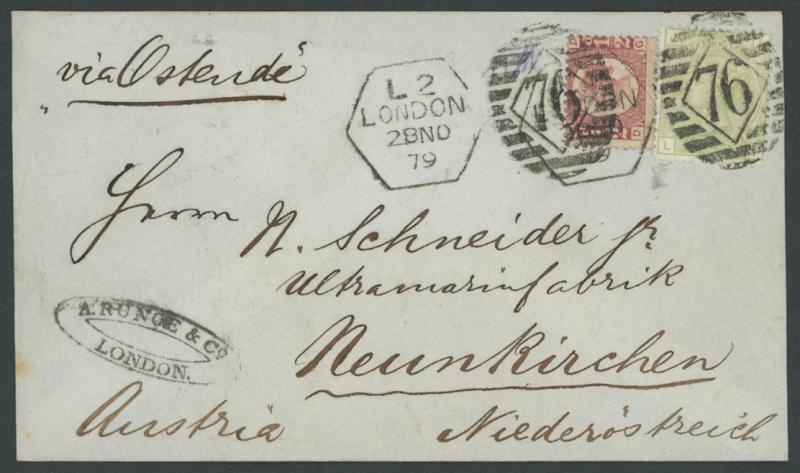 "via Ostende"
L 2
LONDON
28 NO
79
76
76
L
Herrn N. Schneider jr.
Ultramarinfabrik
Neunkirchen
A. RUNGE & Co
LONDON.
Austria Niederöstreich